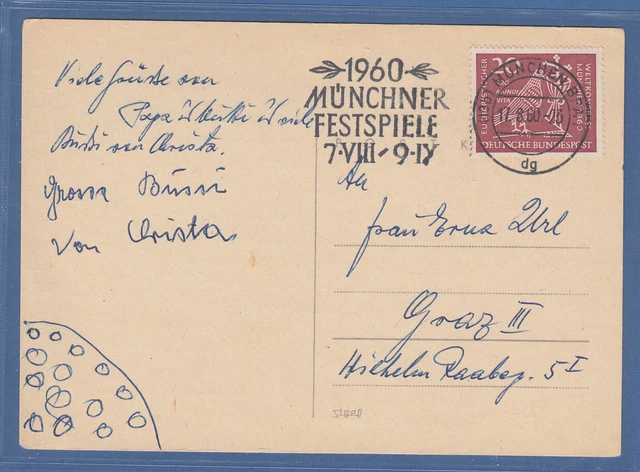 Viele Grüße von
Papa & Mutti & viele
Bussi von Christa.
Grosse Bussi
von Christa
1960
MÜNCHNER
FESTSPIELE
7·VIII - 9·IX
20
EUCHARISTISCHER
WELTKONGRESS
MÜNCHEN 1960
PRO MUNDI VITA
DEUTSCHE BUNDESPOST
MÜNCHEN
.8.60
dg
An
Frau Erna
Graz III
Wilhelm Raabeg. 5 I